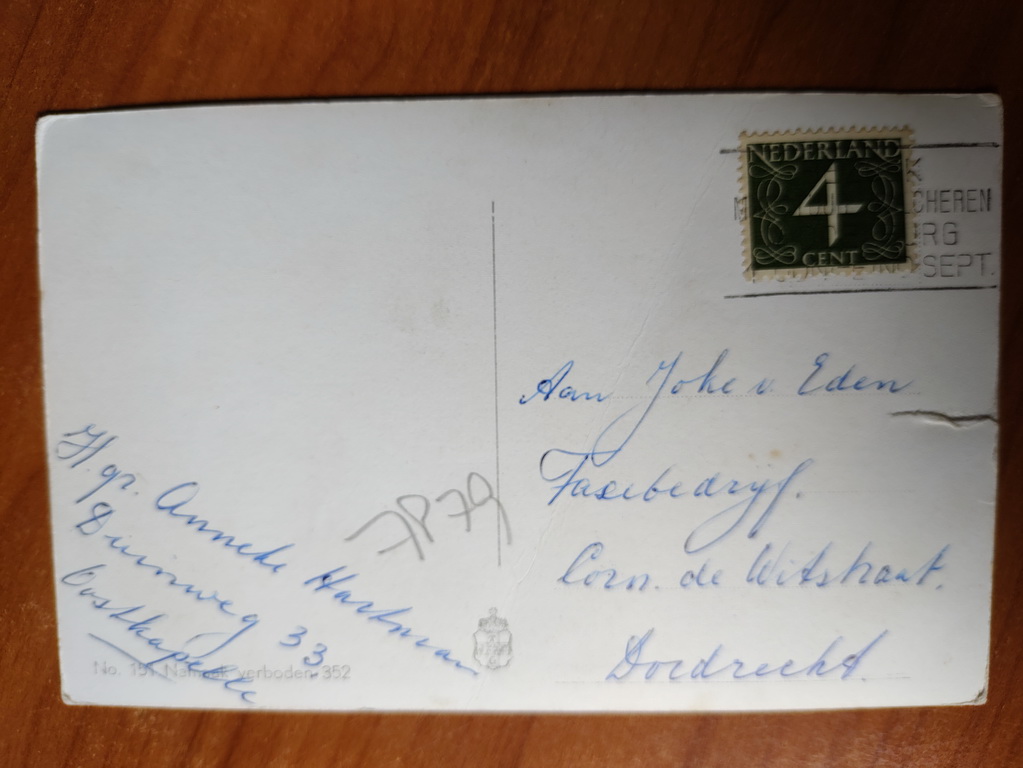 NEDERLAND
4
CENT
CHEREN
RG
SEPT.
Aan Joke v. Eden
Taxebedrijf.
Corn. de Witstraat.
Dordrecht.
H. gr. Anneke Hartman
Duinweg 33
Oostkapelle
7P79
No. 151 Namaak verboden 352